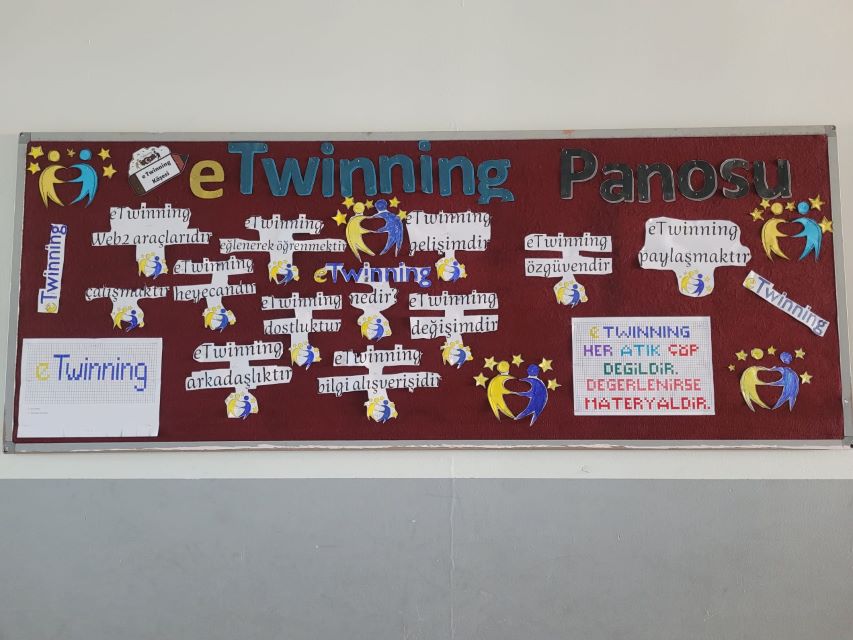 eTwinning Panosu
eTwinning
Köşesi
eTwinning
eTwinning
Web2 araçlarıdır
eTwinning
eğlenerek öğrenmektir
eTwinning
gelişimdir
eTwinning
özgüvendir
eTwinning
paylaşmaktır
çalışmaktır
eTwinning
heyecandır
eTwinning
nedir?
eTwinning
dostluktur
eTwinning
değişimdir
eTwinning
eTwinning
arkadaşlıktır
eTwinning
bilgi alışverişidir
eTwinning
ETWINNING
HER ATIK ÇÖP
DEGİLDİR.
DEGERLENİRSE
MATERYALDİR.